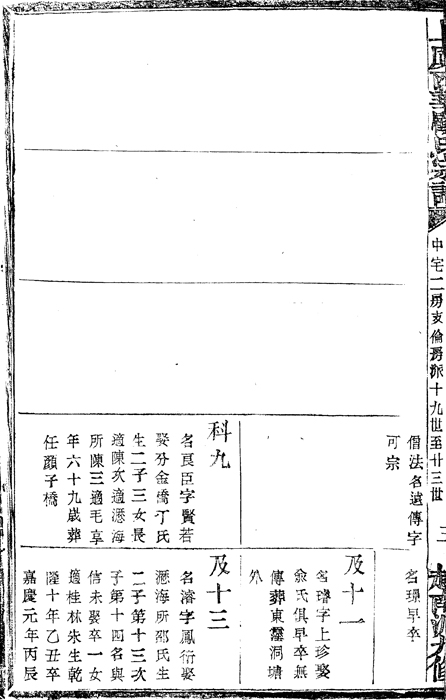 中宅二房亥倫房派十九世至廿三世
三
僧法名遠傳字
可宗
科九
名良臣字賢若
娶分金衖丁氏
生二子三女長
適陳次適瀝海
所陳三適毛享
年六十九歲葬
任顏子橋
名璪早卒
及十一
名璿字上珍娶
俞氏俱早卒無
傳葬東靈洞塘
外
及十三
名濬字鳳衍娶
瀝海所邵氏生
二子第十三次
子第十四名與
信未娶卒一女
適桂林朱生乾
隆十年乙丑卒
嘉慶元年丙辰